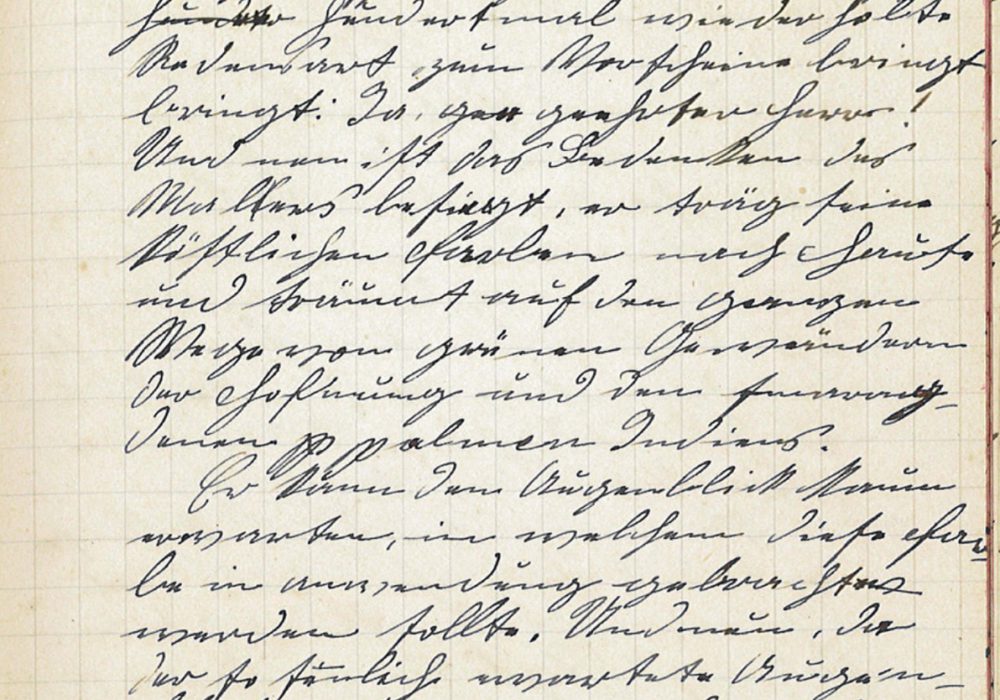 hundertmal wiederholte
Redensart zum Vorscheine bringt
bringt: Ja, geehrter Herr!
Und nun ist das Bedenken des
Mallers besiegt, er träg seine
köstlichen Farben nach Hause
und träumt auf den ganzen
Wege von grünen Gewändern
der Hoffnung und den smarag-
denen Palmen Indiens.
Er kann den Augenblick kaum
erwarten, in welchem diese Far-
be in anwendung gebracht
werden sollte. Und nun, da
der so sehnlich erwartete Augen